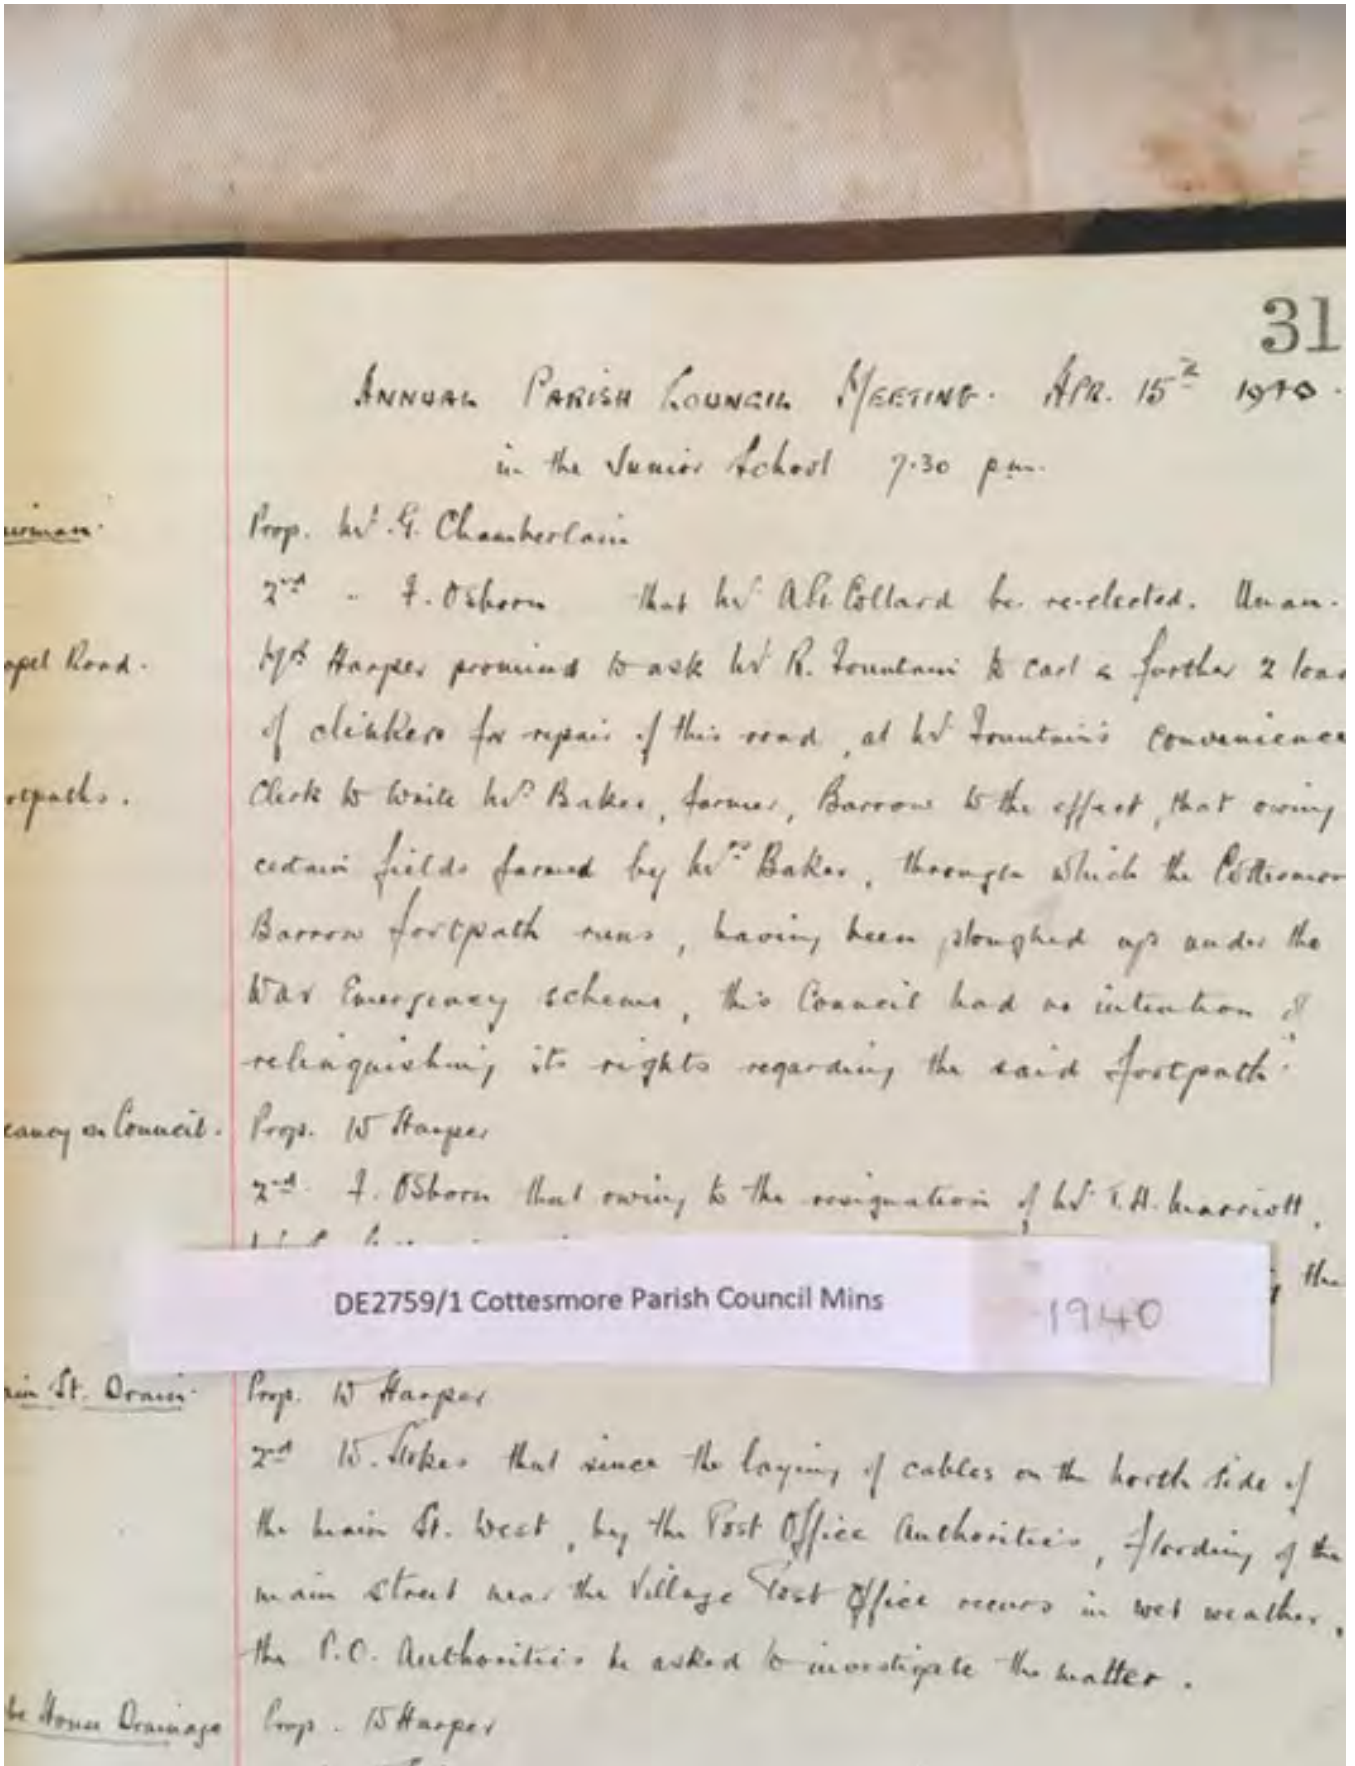 31
ANNUAL PARISH COUNCIL MEETING. APR. 15th 1940.
in the Junior School 7.30 pm.
airman. Prop. Mr G. Chamberlain
2nd " F. Osborn that Mr Collard be re-elected. Unan.
apel Road. Harper promised to ask Mr R. Fountain to cart a further 2 loa
of clinkers for repair of this road, at Mr Fountain's convenience
otpaths. Clerk to write Mrs Baker, farmer, Barrow to the effect, that owing
certain fields farmed by Mrs Baker, through which the Cottesmor
Barrow footpath runs, having been ploughed up under the
War Emergency scheme, this Council had no intention of
relinquishing its rights regarding the said footpath.
cancy on Council. Prop. W Harper
2nd. F. Osborn that owing to the resignation of Mr T.H. Marriott,
the
DE2759/1 Cottesmore Parish Council Mins 1940
ain St. Drain. Prop. W Harper
2nd W. Stokes that since the laying of cables on the north side of
the main St. West, by the Post Office Authorities, flooding of the
main street near the Village Post Office occurs in wet weather,
the P.O. Authorities be asked to investigate the matter.
be House Drainage Prop. W Harper